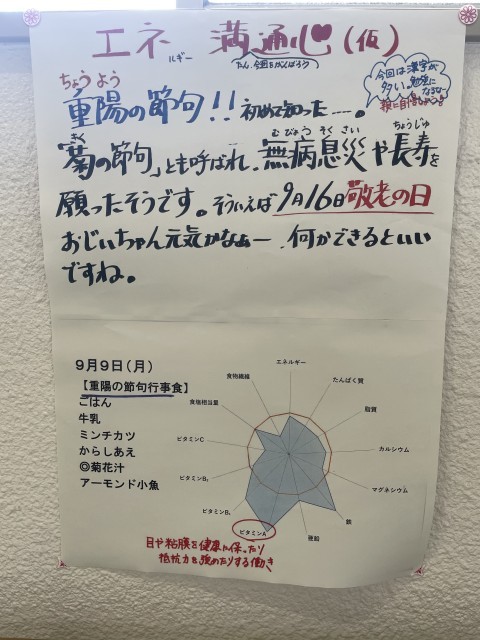 エネルギー 満通心(仮)
たん。今週もがんばろう
今回は漢字が
多い。勉強に
なるな~
親に自慢しちゃう!
ちょうよう
重陽の節句!! 初めて知った……。
きく むびょうそくさい ちょうじゅ
「菊の節句」とも呼ばれ、無病息災や長寿を
願ったそうです。そういえば9月16日敬老の日
おじいちゃん元気かなぁー、何かできるといい
ですね。
9月9日(月)
【重陽の節句行事食】
ごはん
牛乳
ミンチカツ
からしあえ
◎菊花汁
アーモンド小魚
エネルギー
たんぱく質
脂質
カルシウム
マグネシウム
鉄
亜鉛
ビタミンA
ビタミンB₁
ビタミンB₂
ビタミンC
食塩相当量
食物繊維
目や粘膜を健康に保ったり
抵抗力を強めたりする働き